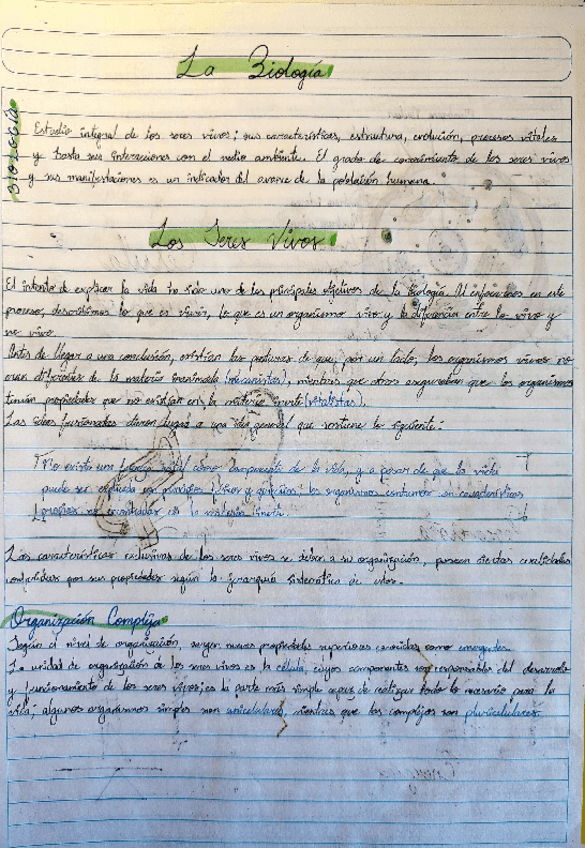 La Biología
BIOLOGÍA
Estudio integral de los seres vivos; sus características, estructura, evolución, procesos vitales
y hasta sus interacciones con el medio ambiente. El grado de conocimiento de los seres vivos
y sus manifestaciones es un indicador del avance de la población humana.
Los Seres Vivos
El intento de explicar la vida ha sido uno de los principales objetivos de la Biología. Al enfocarnos en este
proceso, describimos lo que es vivir, lo que es un organismo vivo y la diferencia entre lo vivo y
no vivo.
Antes de llegar a una conclusión, existían las posturas de que, por un lado, los organismos vivos no
eran diferentes de la materia inanimada (mecanistas), mientras que otros aseguraban que los organismos
tenían propiedades que no existían en la materia inerte (vitalistas).
Las ideas fusionadas dieron lugar a una idea general que sostiene lo siguiente:
No existe una fuerza vital como componente de la vida, y a pesar de que la vida
puede ser explicada en principios físicos y químicos; los organismos contienen características
propias no encontradas en la materia inerte.
Las características exclusivas de los seres vivos se deben a su organización, poseen ciertas cualidades
compartidas por sus propiedades según la jerarquía sistemática de estos.
Organización Compleja
Según el nivel de organización, surgen nuevas propiedades superiores conocidas como emergentes.
La unidad de organización de los seres vivos es la célula, cuyos componentes son responsables del desarrollo
y funcionamiento de los seres vivos; es la parte más simple capaz de realizar todo lo necesario para la
vida; algunos organismos simples son unicelulares, mientras que los complejos son pluricelulares.